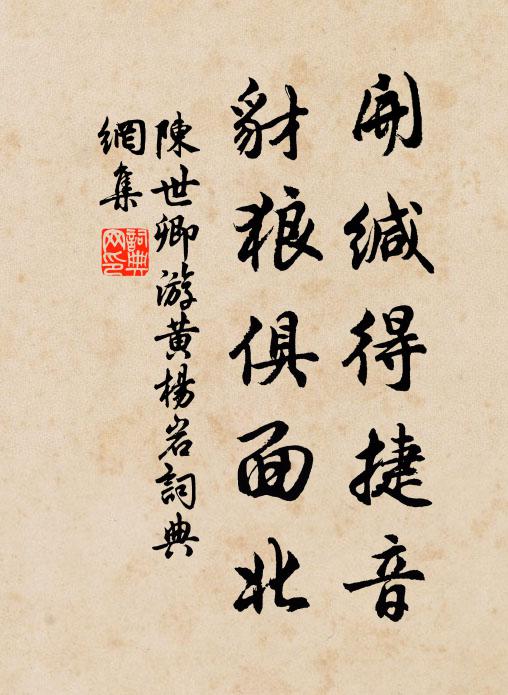 開緘得捷音
豺狼俱面北
陳世卿游黄楊岩詞典
網集
詞典網印